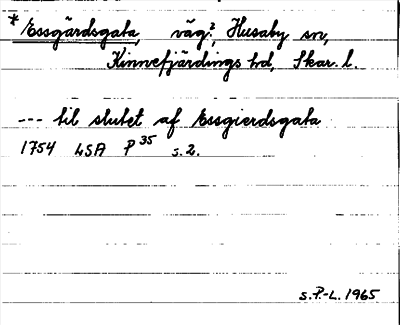 * Essgärdsgata, väg?, Husaby sn,
Kinnefjärdings hd, Skar. l.
--- til slutet af Essgierdsgata
1754 LSA P 35 s. 2.
S.P.-L. 1965